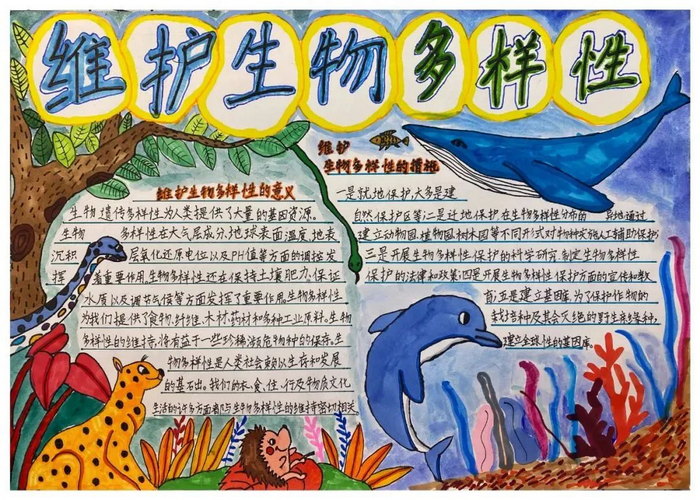 维护生物多样性
维护生物多样性的意义
生物遗传多样性为人类提供了大量的基因资源。
生物 多样性在大气层成分,地球表面温度,地表
沉积 层氧化还原电位以及PH值等方面的调控发
挥 着重要作用,生物多样性还在保持土壤肥力、保证
水质以及调节气候等方面发挥了重要作用。生物多样性
为我们提供了食物,纤维、木材,药材和多种工业原料。生物
多样性的维持,将有益于一些珍稀濒危物种的保存。生
物多样性是人类社会赖以生存和发展
的基石出。我们的衣、食、住、行及物质文化
生活的许多方面都与生物多样性的维持密切相关
维护
生物多样性的措施
一是就地保护,大多是建
自然保护区等;二是迁地保护在生物多样性分布的 异地,通过
建立动物园,植物园,树木园等不同形式对物种实施人工辅助保护;
三是开展生物多样性保护的科学研究,制定生物多样性
保护的法律和政策;四是开展生物多样性保护方面的宣传和教
育;五是建立基因库,为了保护作物的
栽培种及其会灭绝的野生亲缘种,
建立全球性的基因库。